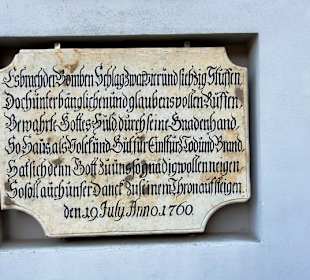 Es brach der Bomben Schlag zwar vier und siebzig Stuffen
Doch unter bänglichen und glaubens vollen Ruffen,
Bewahrte Gottes Huld durch seine Gnadenhand
So Haus als Volck und Gut für Einstürz Tod und Brand.
Hat sich den Gott zu uns so gnädig wollen neigen
So soll auch unser Danck zu seinem Thron aufsteigen.
den. 19 July Anno. 1760.